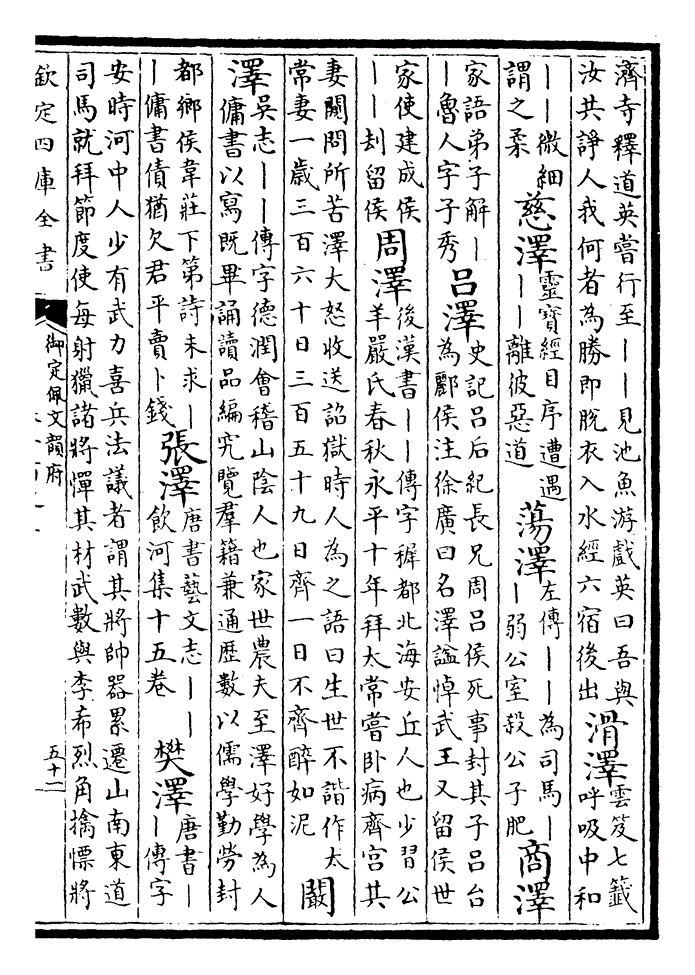 濟寺釋道英嘗行至丨丨見池魚游戲英曰吾與汝共諍人我何者為勝即脫衣入水經六宿後出 滑澤 雲笈七籤呼吸中和
丨丨微細謂之柔 慈澤 靈寶經目序遭遇丨丨離彼惡道 蕩澤 左傳丨丨為司馬丨丨弱公室殺公子肥 商澤
家語弟子解丨丨魯人字子秀 呂澤 史記呂后紀長兄周呂侯死事封其子呂台為酈侯注徐廣曰名澤諡悼武王又留侯世
家使建成侯丨丨刦留侯 周澤 後漢書丨丨傳字穉都北海安丘人也少習公羊嚴氏春秋永平十年拜太常嘗卧病齊宮其
妻闚問所苦澤大怒收送詔獄時人為之語曰生世不諧作太常妻一歲三百六十日三百五十九日齊一日不齊醉如泥 闞
澤 吳志丨丨傳字德潤會稽山陰人也家世農夫至澤好學為人傭書以寫既畢誦讀品編究覽羣籍兼通歷數以儒學勤勞封
都鄉侯韋莊下第詩未求丨丨傭書債猶欠君平賣卜錢 張澤 唐書藝文志丨丨飲河集十五卷 樊澤 唐書丨丨傳字
安時河中人少有武力喜兵法議者謂其將帥器累遷山南東道司馬就拜節度使每射獵諸將憚其材武數與李希烈角擒慓將
欽定四庫全書
御定佩文韻府
五十二